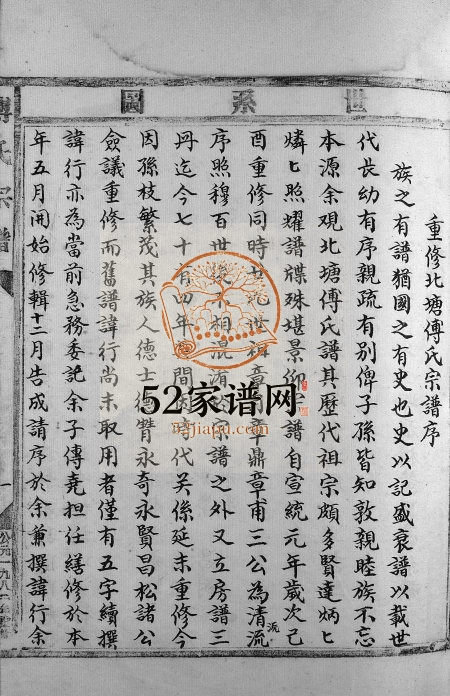 世系圖
重修北塘傅氏宗譜序
族之有譜猶國之有史也史以記盛衰譜以載世
代長幼有序親疏有别俾子孫皆知敦親睦族不忘
本源余观北塘傅氏譜其歷代祖宗頗多賢達炳匕
燐匕照耀譜牒殊堪景仰宗譜自宣統元年歲次己
酉重修同時 世祖章 章鼎章甫三公為清流
序照穆百世 不相混淆 宗譜之外又立房譜三
丹迄今七十有四年 間 代关係延未重修今
因孫枝繁茂其族人德士 膂永奇永賢昌松諸公
僉議重修而舊譜諱行尚未取用者僅有五字續撰
諱行亦為當前急務委託余子傳堯担任繕修於本
年五月開始修輯十二月告成請序於余兼撰諱行余
傅氏宗譜
一
公元一九八
52家谱网
52jiapu.com